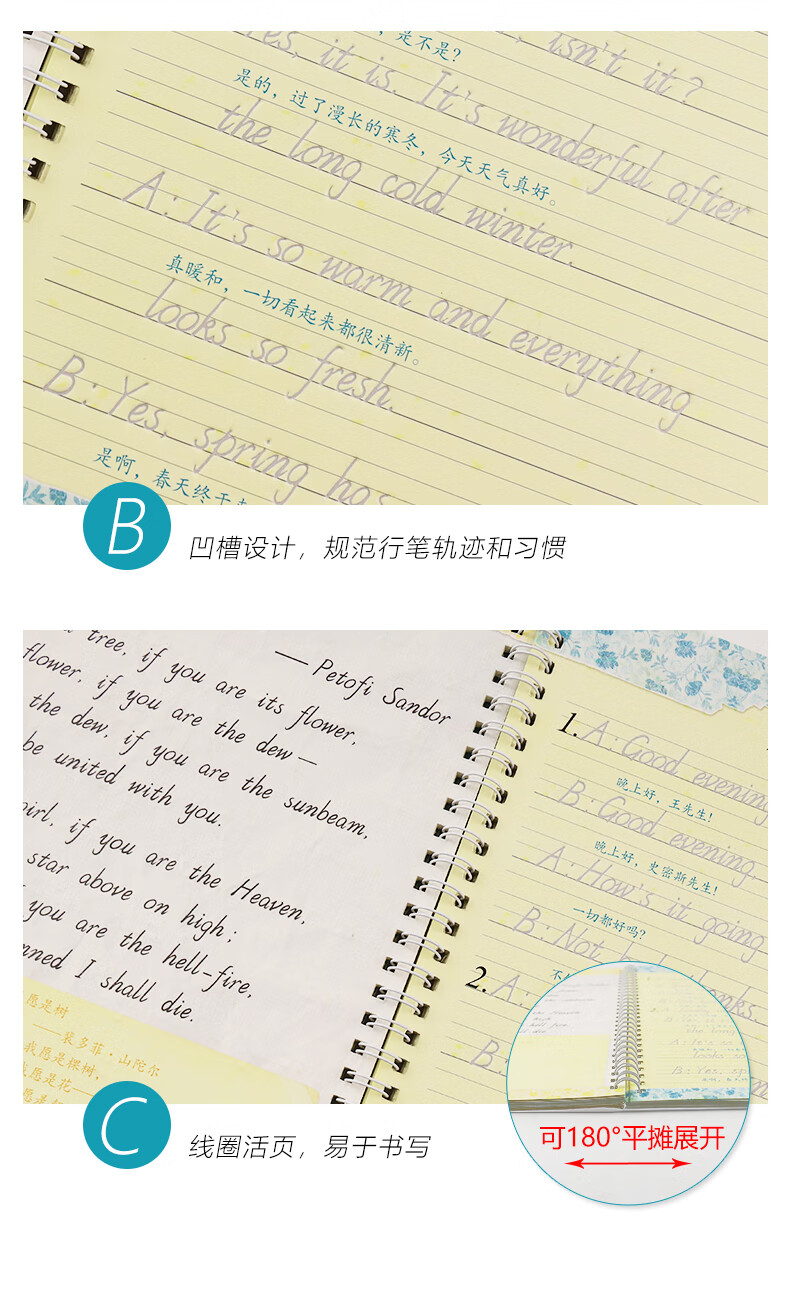 ，是不是？
isn't it?
Yes, it is. It's wonderful after
是的，过了漫长的寒冬，今天天气真好。
the long cold winter.
A: It's so warm and everything
真暖和，一切看起来都很清新。
looks so fresh.
B: Yes, spring has
是啊，春天终于
B
凹槽设计，规范行笔轨迹和习惯
—Petofi Sandor
tree, if you are its flower,
flower, if you are the dew—
the dew, if you are the sunbeam,
be united with you.
girl, if you are the Heaven,
star above on high;
you are the hell-fire,
I shall die.
愿是树
——裴多菲·山陀尔
我愿是棵树，
我愿是花——
1. A: Good evening
晚上好，王先生！
B: Good evening
晚上好，史密斯先生！
A: How's it going
一切都好吗？
B: Not bad, thanks.
2. A:
B:
可180°平摊展开
C
线圈活页，易于书写